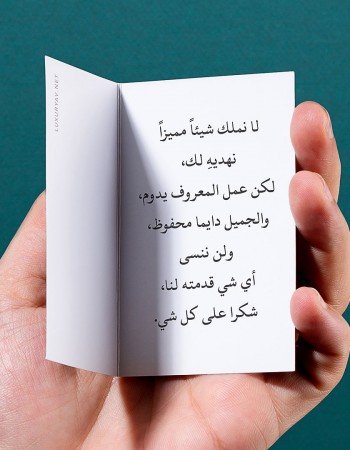 لا نملك شيئاً مميزاً
نهديهِ لك،
لكن عمل المعروف يدوم،
والجميل دايما محفوظ،
ولن ننسى
أي شي قدمته لنا،
شكرا على كل شي.